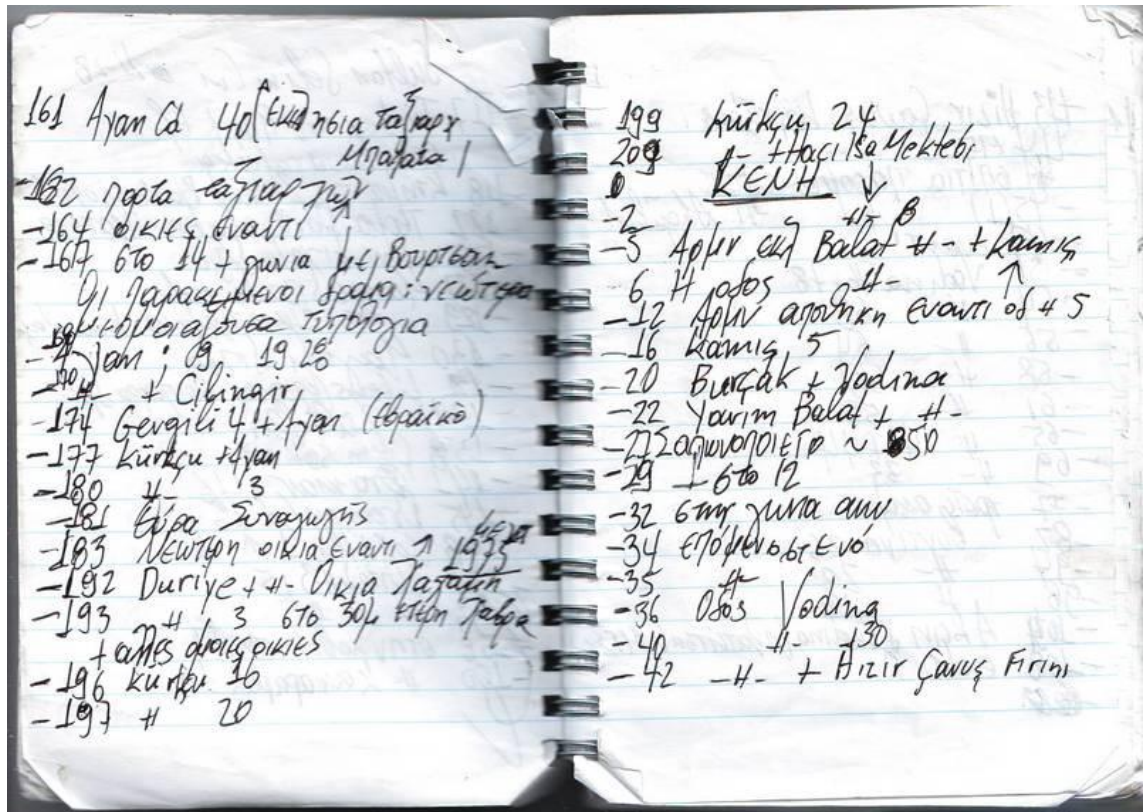 161 Ayan Cd 40 (Εκκ)ησια Ταξιαρχ
Μπαλατα 1
-162 πορτα ταξιαρχών
-164 οικιες εναντι
-167 στο 14 + γωνια με
Οι παρακείμενοι δρομοι: νεώτερα
τυπολογια
-169 Ayan 09 1928
-170 -〃- + Cilingir
-174 Gevgili 4 + Ayan (εβραϊκό)
-177 Kürkçu + Ayan
-180 -〃- 3
-181 θύρα Συναγωγής
-183 Νεωτερη οικια εναντι 1975
-192 Duriye + -〃- Οικια
-193 〃 3 στο 30
+ αλλες ομοιες οικιες
-196 Kürkçu 16
-197 〃 20
199 Kürkçu 24
209 -〃- + Haci Isa Mektebi
0 ΚΕΝΗ ↓
-2 -〃- 8
-5 Αρμν εκλ Balat -〃- + Kamış
6 Η οδος -〃- ↑
-12 Αρμν αποθηκη εναντι οδ # 5
-16 Kamış 5
-20 Burçak + Vodina
-22 Yarım Balat + -〃-
-27 Σαπωνοποιειο ~ 850
-29 στο 12
-32 στην γωνια
-34 επόμενο στενό
-35 -〃-
-36 Οδος Vodina
-40 -〃- 30
-42 -〃- + Hızır Çavuş Fırını